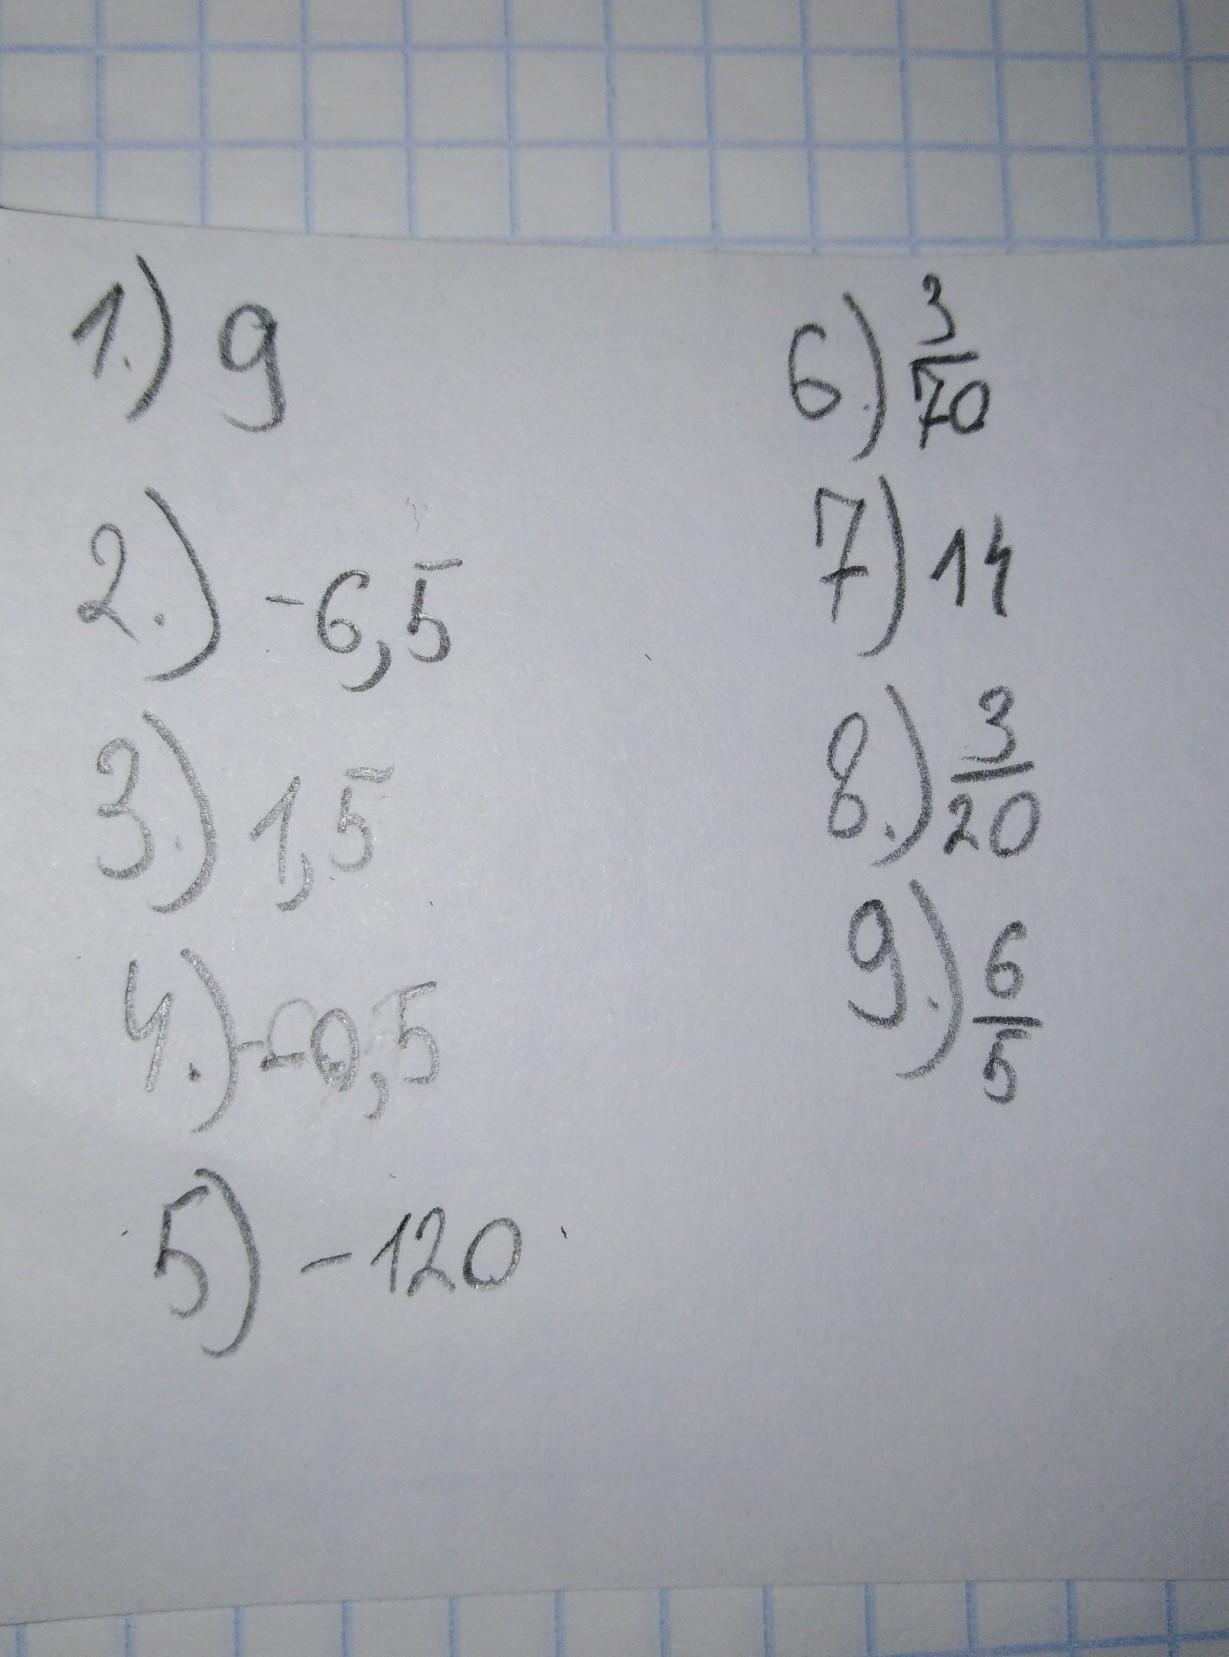 1.) 9
2.) -6,5
3.) 1,5
4.) -0,5
5) -120
6.) 3/70
7) 14
8.) 3/20
9.) 6/5